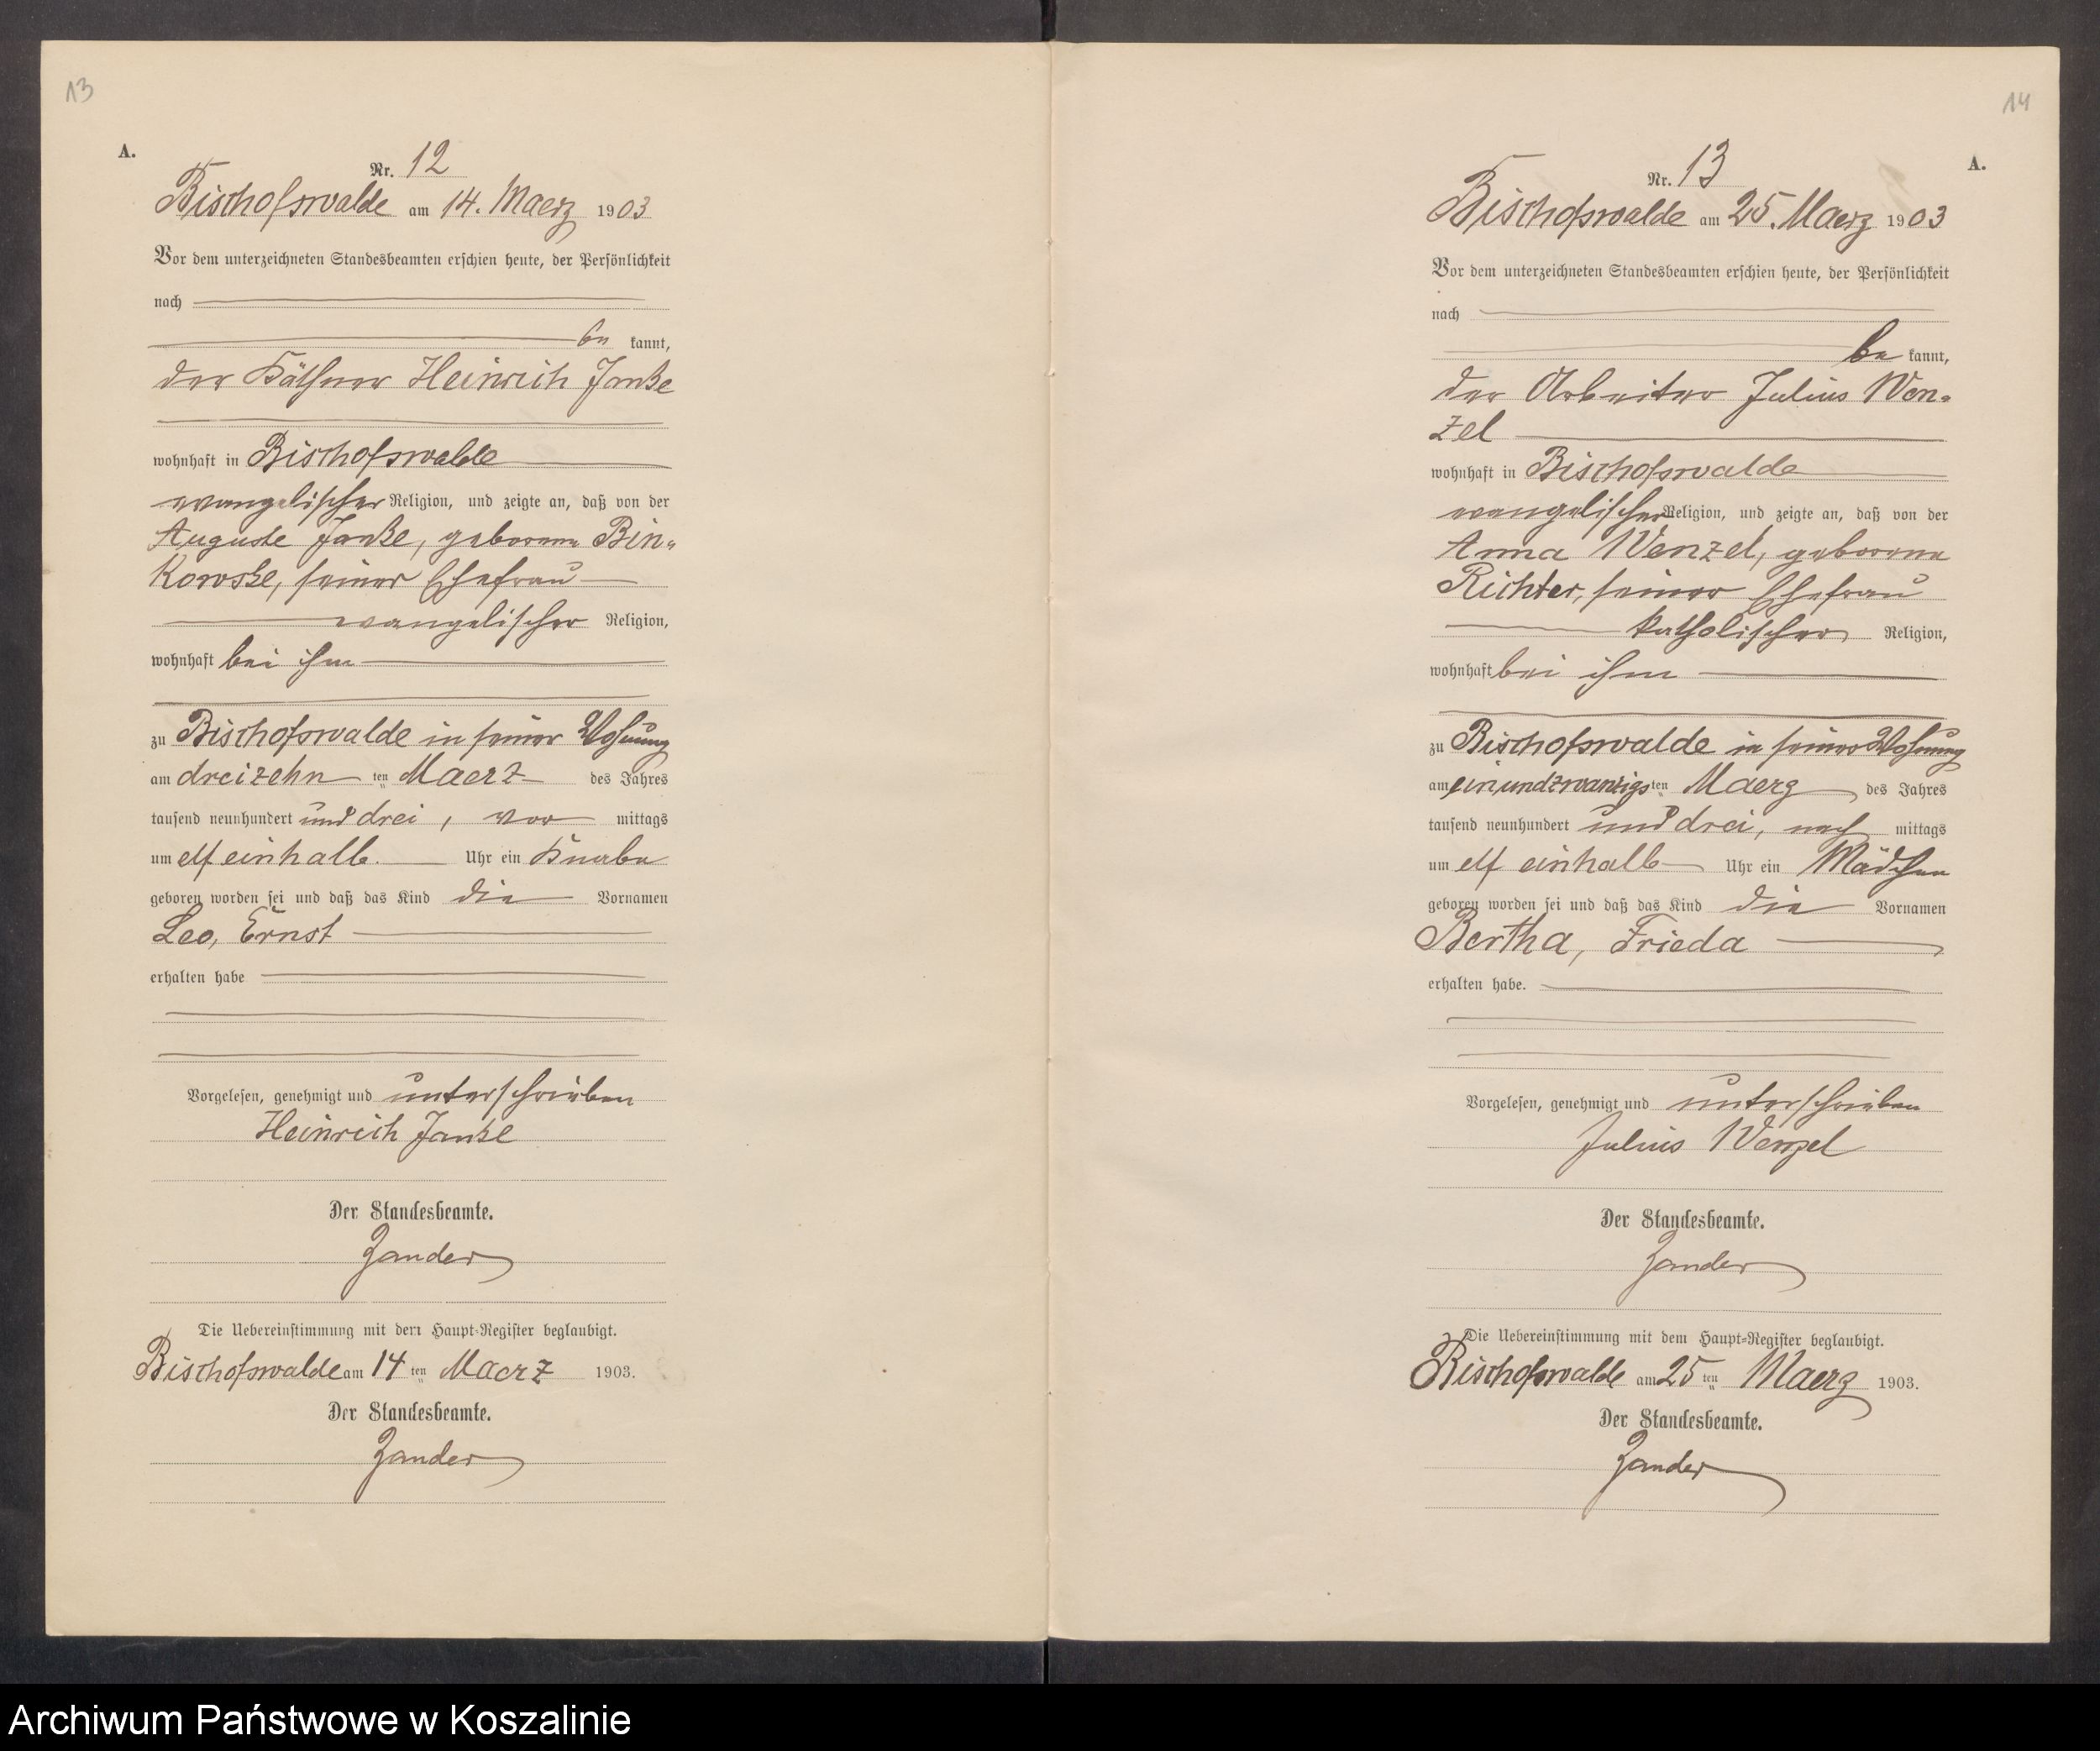 13
A.
Nr. 12
Bischofswalde am 14. Maerz 1903
Vor dem unterzeichneten Standesbeamten erschien heute, der Persönlichkeit
nach
be kannt,
der Käthner Heinrich Janke
wohnhaft in Bischofswalde
evangelischer Religion, und zeigte an, daß von der
Auguste Janke, geborene Bin-
kowske, seiner Ehefrau
evangelischer Religion,
wohnhaft bei ihm
zu Bischofswalde in seiner Wohnung
am dreizehn ten Maerz des Jahres
tausend neunhundert und drei, vor mittags
um elf einhalb Uhr ein Knabe
geboren worden sei und daß das Kind die Vornamen
Leo, Ernst
erhalten habe
Vorgelesen, genehmigt und unterschrieben
Heinrich Janke
Der Standesbeamte.
Zander
Die Uebereinstimmung mit dem Haupt-Register beglaubigt.
Bischofswalde am 14 ten Maerz 1903.
Der Standesbeamte.
Zander
14
A.
Nr. 13
Bischofswalde am 25. Maerz 1903
Vor dem unterzeichneten Standesbeamten erschien heute, der Persönlichkeit
nach
be kannt,
der Arbeiter Julius Wen-
zel
wohnhaft in Bischofswalde
evangelischer Religion, und zeigte an, daß von der
Anna Wenzel, geborene
Richter, seiner Ehefrau
katholischer Religion,
wohnhaft bei ihm
zu Bischofswalde in seiner Wohnung
am einundzwanzigs ten Maerz des Jahres
tausend neunhundert und drei, nach mittags
um elf einhalb Uhr ein Mädchen
geboren worden sei und daß das Kind die Vornamen
Bertha, Frieda
erhalten habe.
Vorgelesen, genehmigt und unterschrieben
Julius Wenzel
Der Standesbeamte.
Zander
Die Uebereinstimmung mit dem Haupt-Register beglaubigt.
Bischofswalde am 25 ten Maerz 1903.
Der Standesbeamte.
Zander
Archiwum Państwowe w Koszalinie